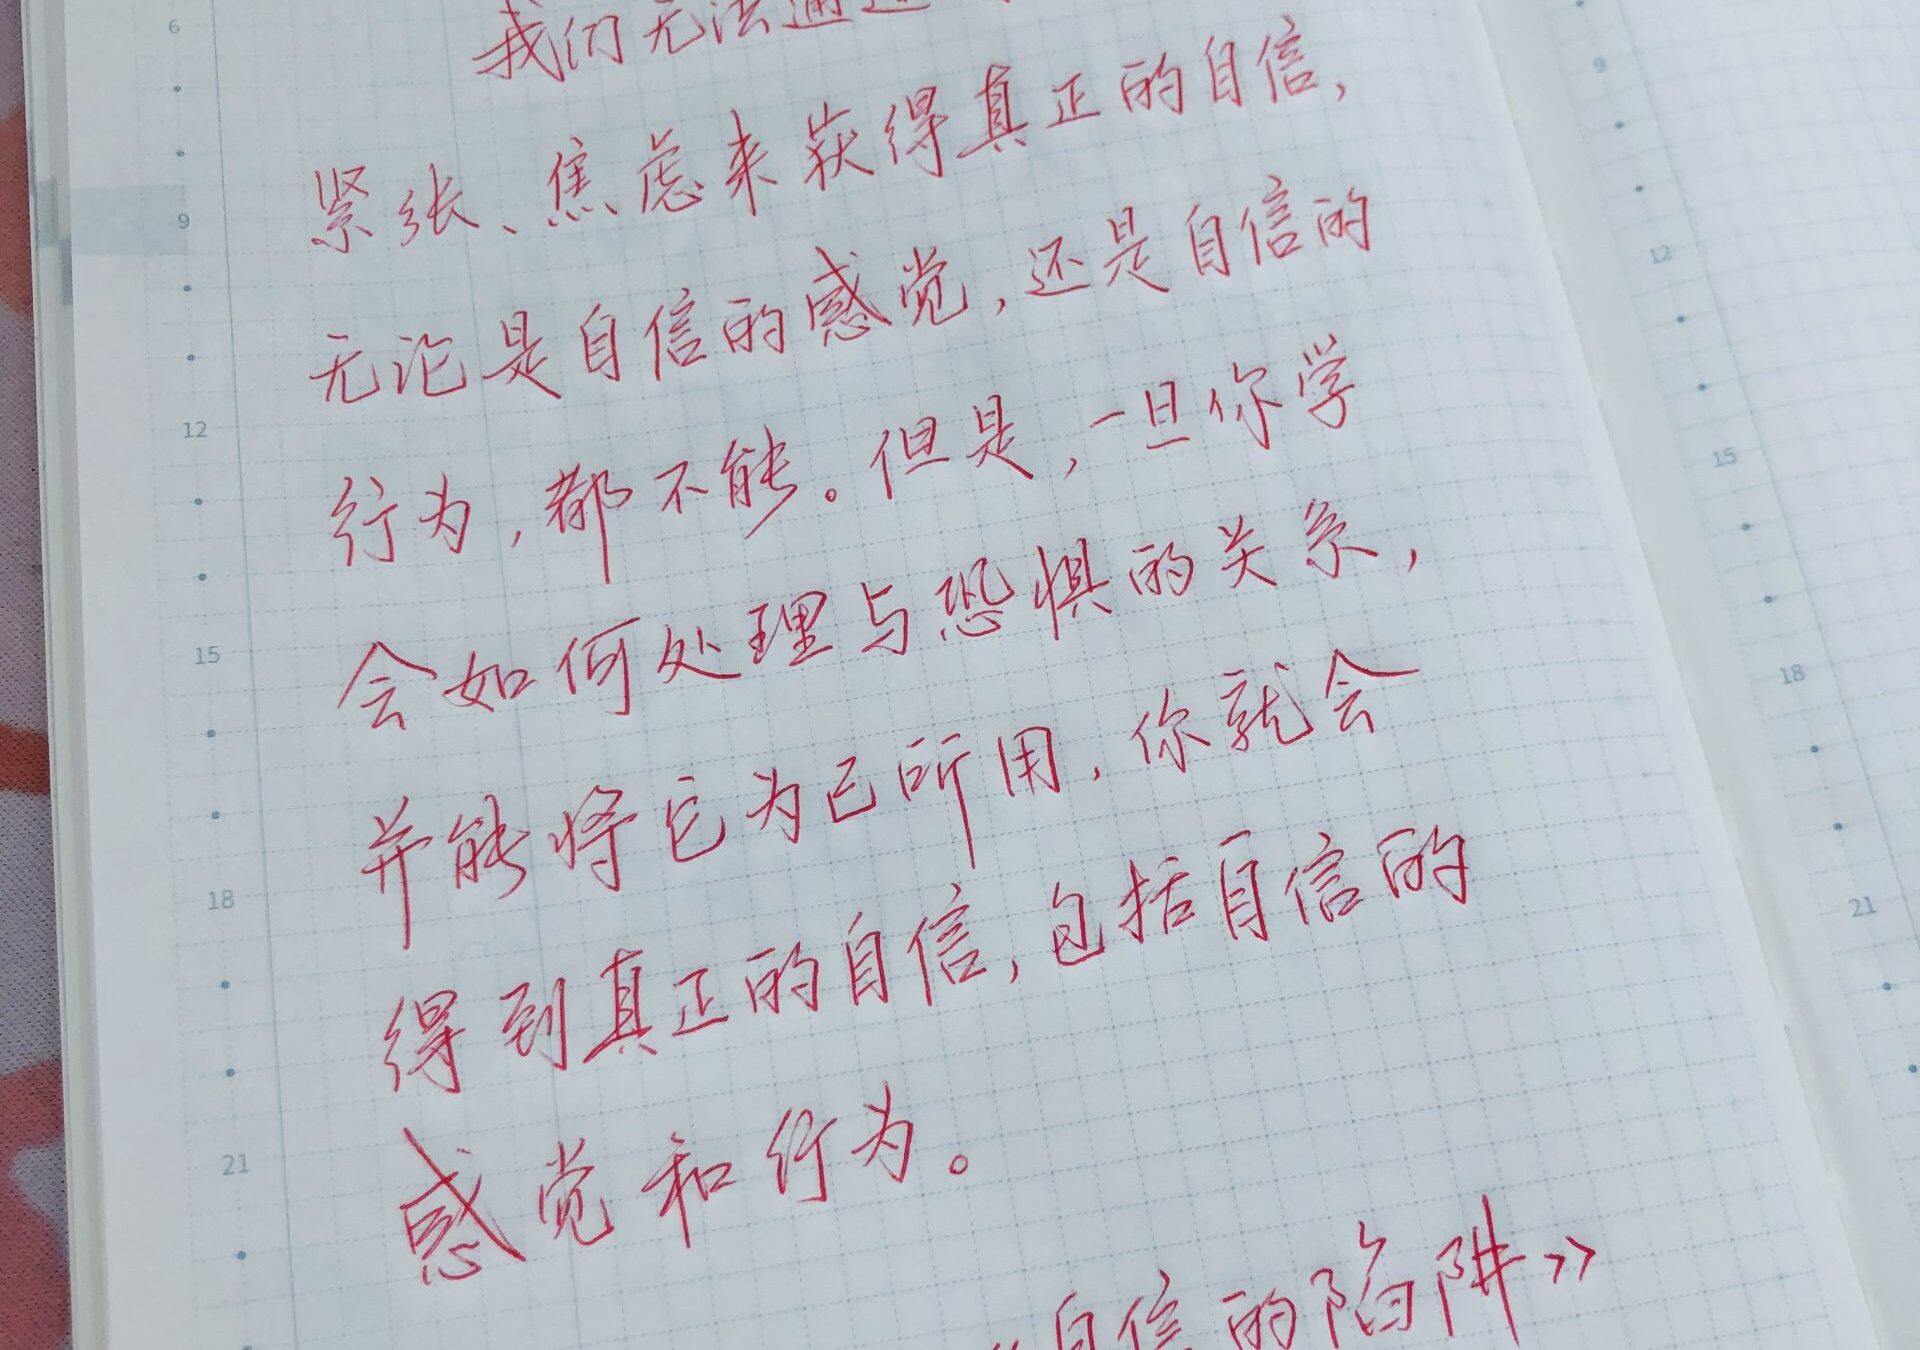 我们无法通过
紧张、焦虑来获得真正的自信,
无论是自信的感觉,还是自信的
行为,都不能。但是,一旦你学
会如何处理与恐惧的关系,
并能将它为己所用,你就会
得到真正的自信,包括自信的
感觉和行为。
《自信的陷阱》
6
9
12
15
18
21
9
12
15
18
21